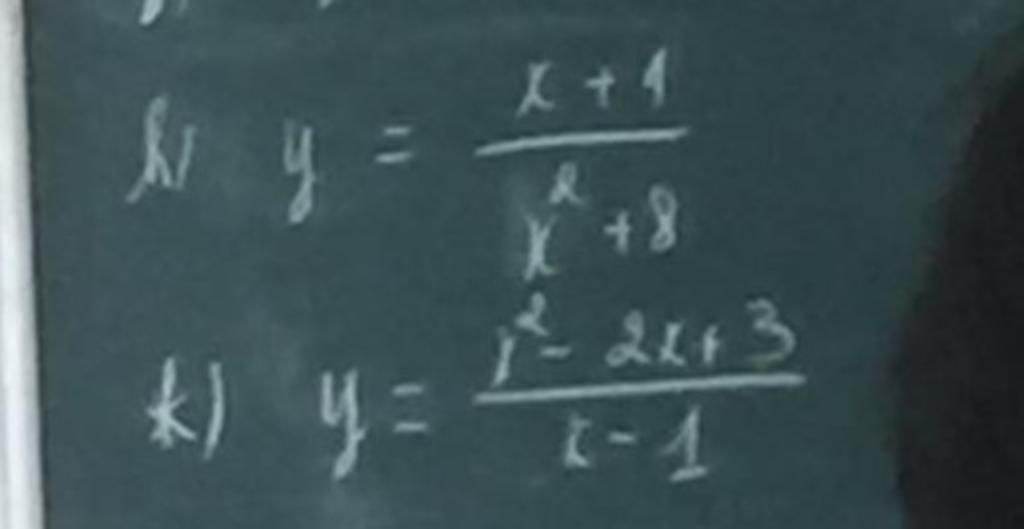 h) y = \frac{x + 1}{x^2 + 8}
k) y = \frac{x^2 - 2x + 3}{x - 1}